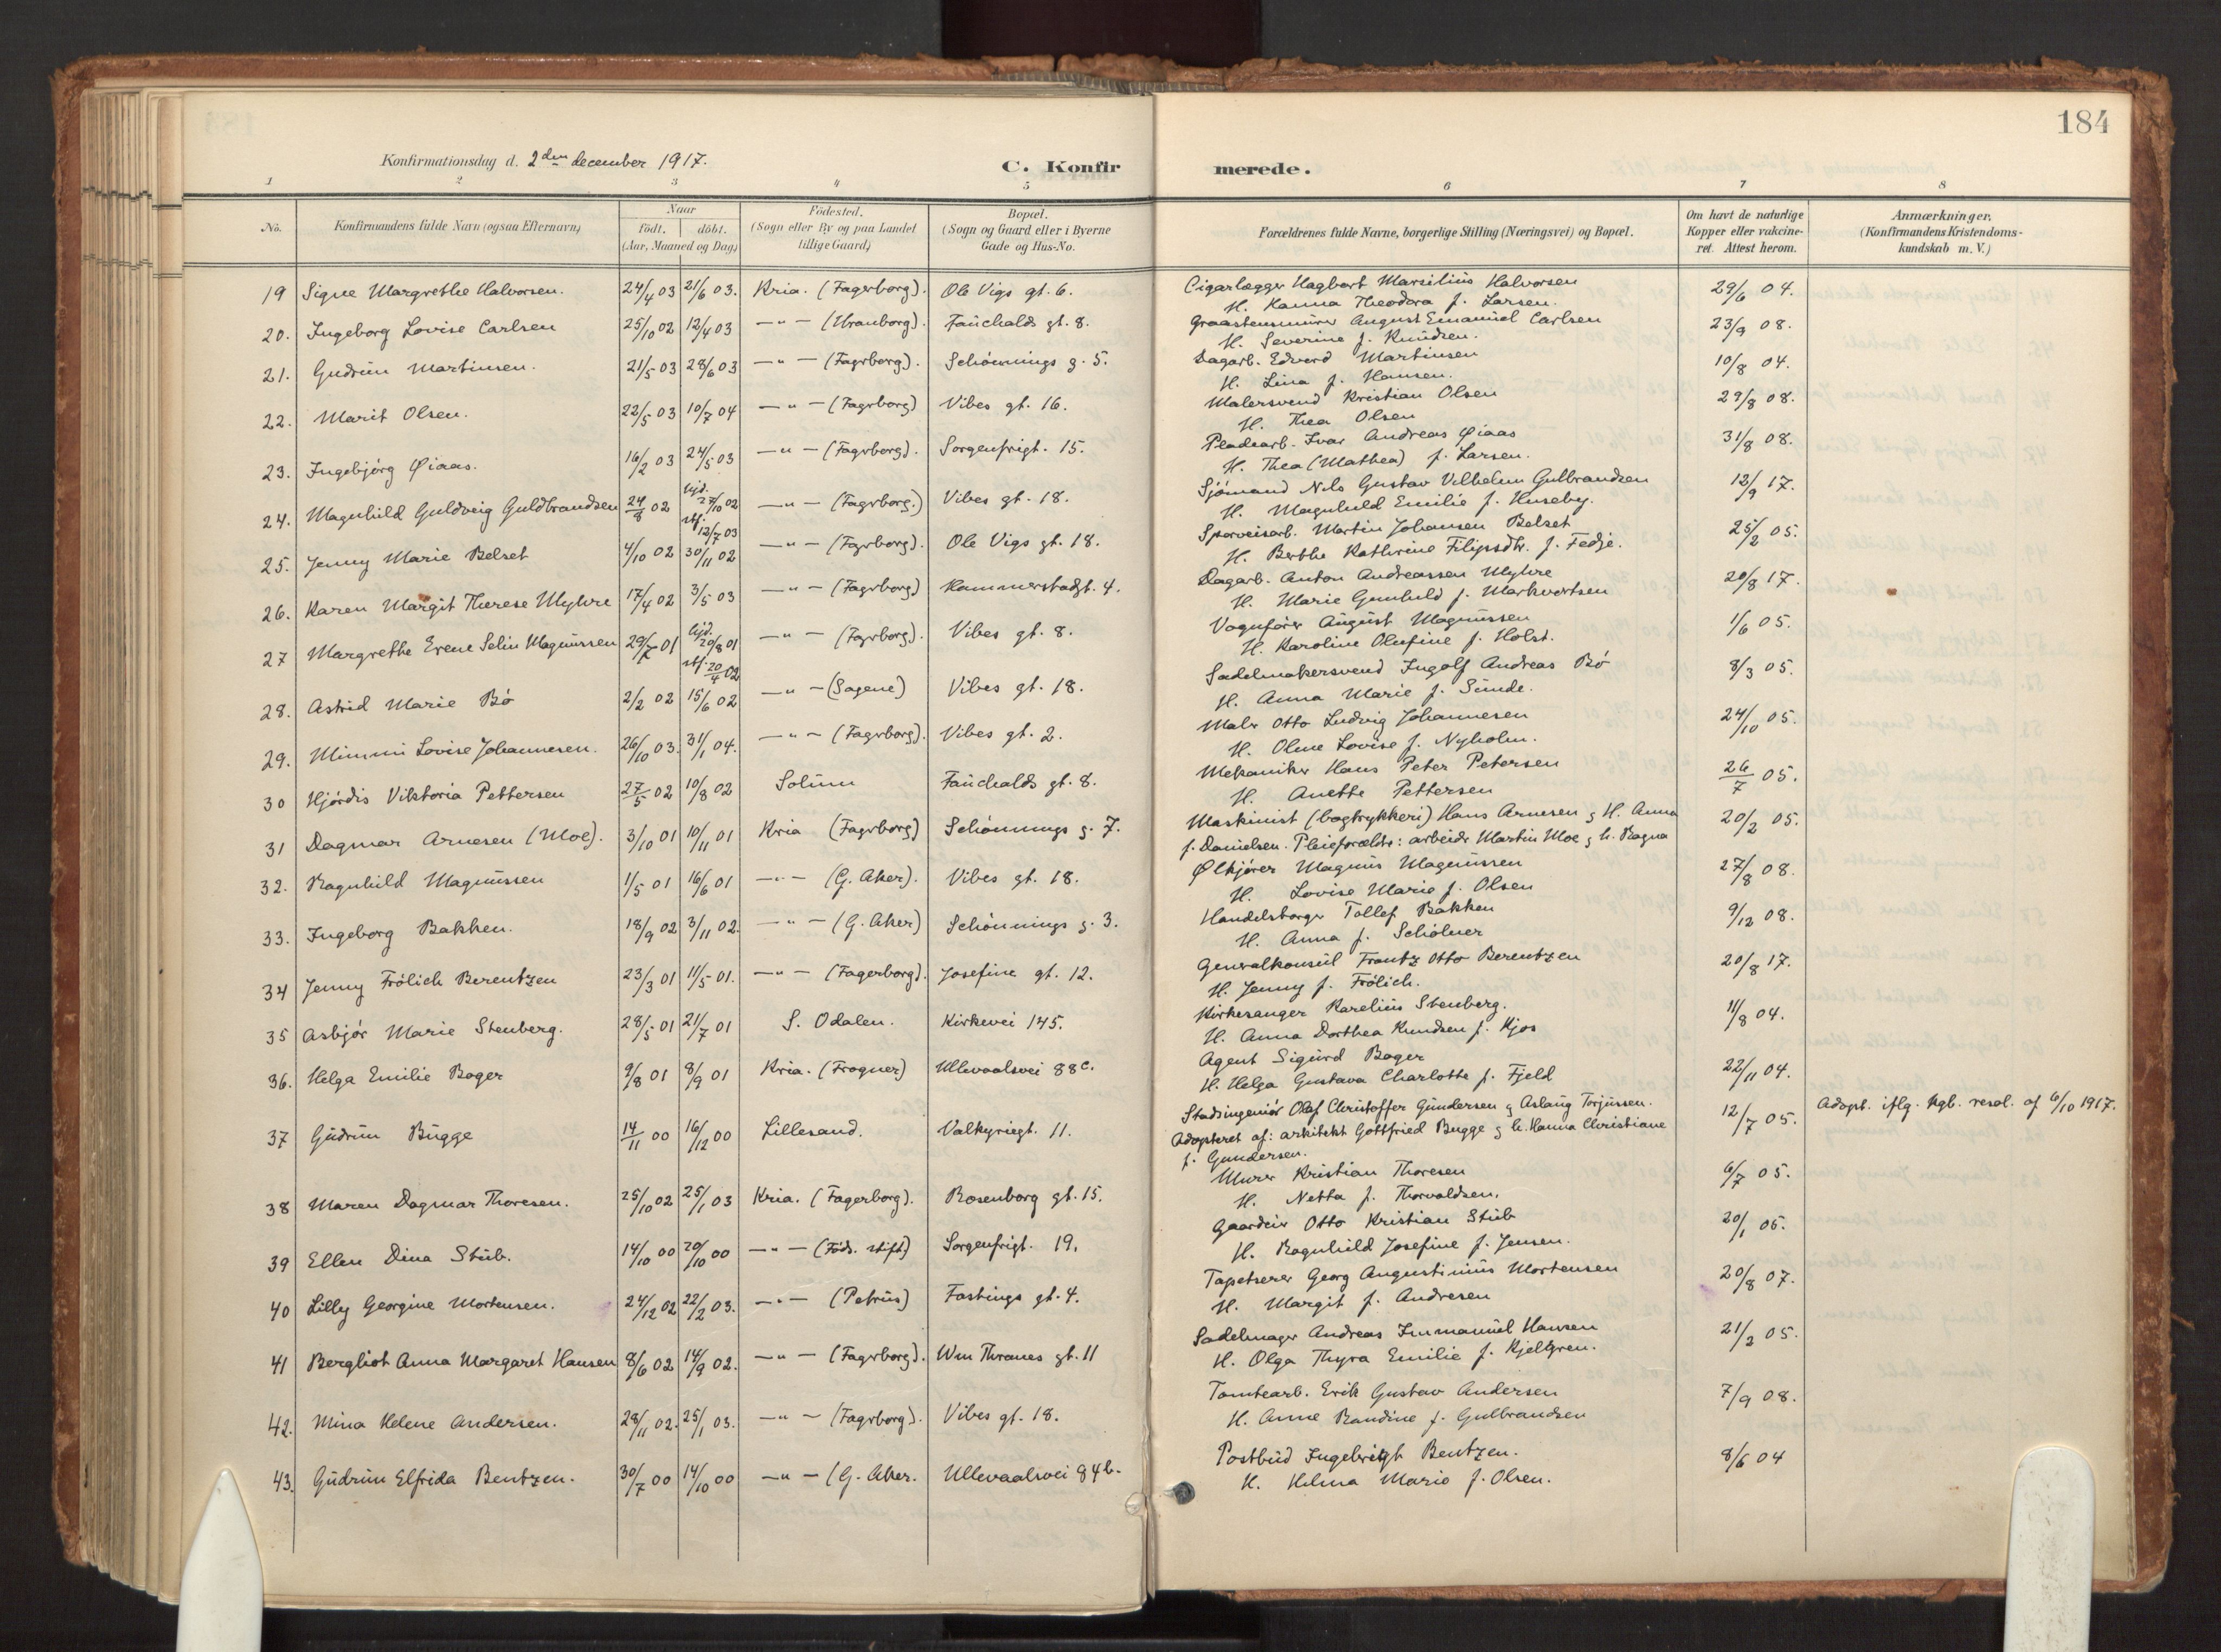 184
Konfirmationsdag d. 2den december 1917.
C. Konfirmerede.
1 2 3 4 5 6 7 8
No. Konfirmandens fulde Navn (ogsaa Efternavn) Naar födt. döbt. (Aar, Maaned og Dag) Födested. (Sogn eller By og paa Landet tillige Gaard) Bopæl. (Sogn og Gaard eller i Byerne Gade og Hus-No. Forældrenes fulde Navne, borgerlige Stilling (Næringsvei) og Bopæl. Om havt de naturlige Kopper eller vakcineret. Attest herom. Anmærkninger. (Konfirmandens Kristendomskundskab m. V.)
19 Signe Margrethe Halvorsen. 24/4 03 21/6 03. Kria. (Fagerborg). Ole Vigs gt. 6. Cigarlægger Hagbart Marsilius Halvorsen 29/6 04.
H. Hanna Theodora f. Larsen.
20. Ingeborg Lovise Carlsen 25/10 02 12/4 03 —"— (Uranborg). Fauchalds gt. 8. Graastensmurer August Emanuel Carlsen 23/9 08.
H. Severine f. Knudsen.
21. Gudrun Martinsen. 21/5 03 28/6 03 —"— (Fagrborg). Schönnings g. 5. Dagarb. Edvard Martinsen 10/8 04.
H. Lina f. Hansen.
22. Marit Olsen. 22/5 03 10/7 04 —"— (Fagrborg) Vibes gt. 16. Malersvend Kristian Olsen 29/8 08.
H. Thea Olsen
23. Ingebjörg Øiaas. 16/2 03 24/5 03 —"— (Fagrborg). Sorgenfrigt. 15. Pladearb. Ivar Andreas Øiaas 31/8 08.
H. Thea (Mathea) f. Larsen.
24. Magnhild Guldveig Guldbrandsen 24/8 02 hjd. 27/10 02 stf. 12/7 03 —"— (Fagrborg.) Vibes gt. 18. Sjömand Nils Gustav Vilhelm Gulbrandsen 12/9 17.
H. Magnhild Emilie f. Huseby.
25. Jenny Marie Belset 4/10 02 30/11 02 —"— (Fagrborg). Ole Vigs gt. 18. Sporveisarb. Martin Johansen Belset 25/2 05.
H. Berthe Kathrine Filipsdtr. f. Fedje.
26. Karen Margit Therese Myhre 17/4 02 3/5 03 —"— (Fagrborg) Hammerstadgt. 4. Dagarb. Anton Andreassen Myhre 20/8 17.
H. Marie Gunhild f. Markvortsen
27 Margrethe Evene Selin Magnussen 29/7 01 hjd. 20/8 01 stf. 20/4 02 —"— (Fagrborg). Vibes gt. 8. Vognfører August Magnussen 1/6 05.
H. Karoline Olufine f. Holst.
28. Astrid Marie Bö 2/2 02 15/6 02 —"— (Sagene) Vibes gt. 18. Sadelmakersvend Ingolf Andreas Bö 8/3 05.
H. Anna Marie f. Sunde.
29. Mimmi Lovise Johannesen. 26/10 03. 31/1 04. —"— (Fagrborg). Vibes gt. 2. Maler Otto Ludvig Johannesen 24/10 05.
H. Oline Lovise f. Nyholm.
30 Hjördis Viktoria Pettersen 27/5 02 10/8 02 Solum Fauchalds gt. 8. Mekaniker Hans Peter Petersen 26/7 05.
H. Anette Pettersen
31 Dagmar Arnesen (Moe). 3/10 01 10/11 01 Kria (Fagrborg) Schönnings g. 7. Maskinist (bogtrykkeri) Hans Arnesen og H. Anna 20/2 05.
f. Danielsen. Pleieforældre: arbeider Martin Moe og h. Ragna
32. Ragnhild Magnussen 1/5 01 16/6 01 —"— (G. Aker). Vibes gt. 18. Ølkjører Magnus Magnussen 27/8 08.
H. Lovise Marie f. Olsen
33. Ingeborg Bakken. 18/9 02 3/11 02. —"— (G. Aker) Schönnings g. 3. Handelsborger Tollef Bakken 9/12 08.
H. Anna f. Schölner
34 Jenny Frölich Berentzen 23/3 01 11/5 01. —"— (Fagerborg). Josefine gt. 12. Generalkonsul Frantz Otto Berentzen 20/8 17.
H. Jenny f. Frölich.
35 Asbjör Marie Stenberg. 28/5 01 21/7 01 S. Odalen. Kirkevei 145. Kirkesanger Karelius Stenberg. 11/8 04.
H. Anna Dorthea Knudsen f. Kjos
36. Helga Emilie Bager 9/8 01 8/9 01 Kria. (Frogner) Ullevaalsvei 88c. Agent Sigurd Bager 22/11 04.
H. Helga Gustava Charlotte f. Fjeld
37 Gudrun Bugge 14/11 00 16/12 00 Lillesand. Valkyriegt. 11. Stadsingeniör Olaf Christoffer Gundersen og Aslaug Torjussen. 12/7 05. Adopt. iflg. kgl. resol. af 6/10 1917.
Adopteret af: arkitekt Gottfried Bugge og h. Hanna Christiane
f. Gundersen.
38 Maren Dagmar Thoresen. 25/10 02 25/1 03 Kria. (Fagerborg). Rosenborg gt. 15. Murer Kristian Thoresen 6/7 05.
H. Netta f. Thorvaldsen.
39 Ellen Dina Stub. 14/10 00 20/10 00 —"— (Föds. stift) Sorgenfrigt. 19. Gaardeier Otto Kristian Stub 20/1 05.
H. Ragnhild Josefine f. Jensen.
40 Lilly Georgine Mortensen. 24/12 02 22/2 03. —"— (Petrus) Fastings gt. 4. Tapetserer Georg Augustinius Mortensen 20/8 07.
H. Margit f. Andresen
41 Bergliot Anna Margaret Hansen 8/6 02 14/9 02. —"— (Fagrborg). Wm Thranes gt. 11 Sadelmager Andreas Immanuel Hansen 21/2 05.
H. Olga Thyra Emilie f. Kjellgren.
42. Mina Helene Andersen. 28/11 02. 25/1 03. —"— (Fagrborg). Vibes gt. 18. Tomtearb. Erik Gustav Andersen 7/9 08.
H. Anne Randine f. Gulbrandsen
43. Gudrun Elfrida Bentzen. 30/7 00 14/10 00 —"— (G. Aker. Ullevaalsvei 84b. Postbud Ingebrigt Bentzen. 8/6 04
H. Helma Marie f. Olsen.